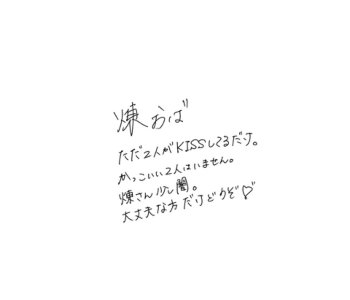 煉おば
ただ2人がKISSしてるだけ。
かっこいい2人はいません。
煉さん少し闇。
大丈夫な方だけどうぞ♡